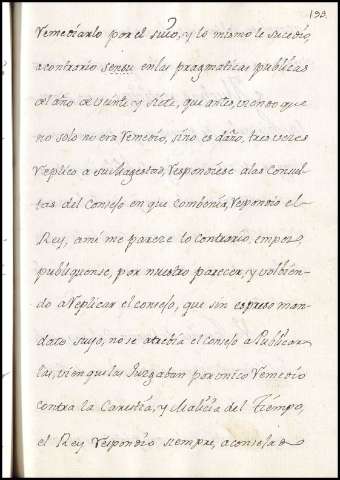 193.
remediarlo por el suio, y lo mismo le sucedio,
acontrario sensu en las pragmaticas publicas
del año de veinte y siete, que antes, viendo que
no solo no era remedio, sino es daño, tres veces
replico a su Magestad, respondiese alas Consul-
tas del Consejo en que combenia, respondio el
Rey, ami me pareze lo contrario, empero,
publiquense, por nuestro parecer, y volbien-
do a replicar el consejo, que sin espreso man-
dato suyo, no se atrebia el consejo a Publicar
las, vien que las Juzgaban por unico remedio
contra la Carestia, y Malicia del Tiempo,
el Rey respondio siempre, aconsejado